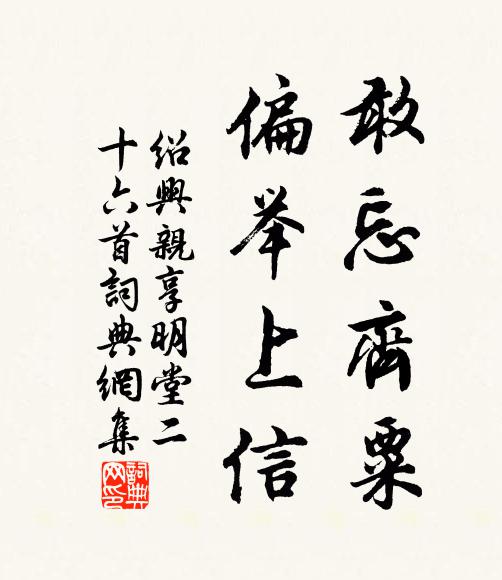 敢忘齊粟
偏举上信
绍興親享明堂二
十六首詞典網集
詞典网印